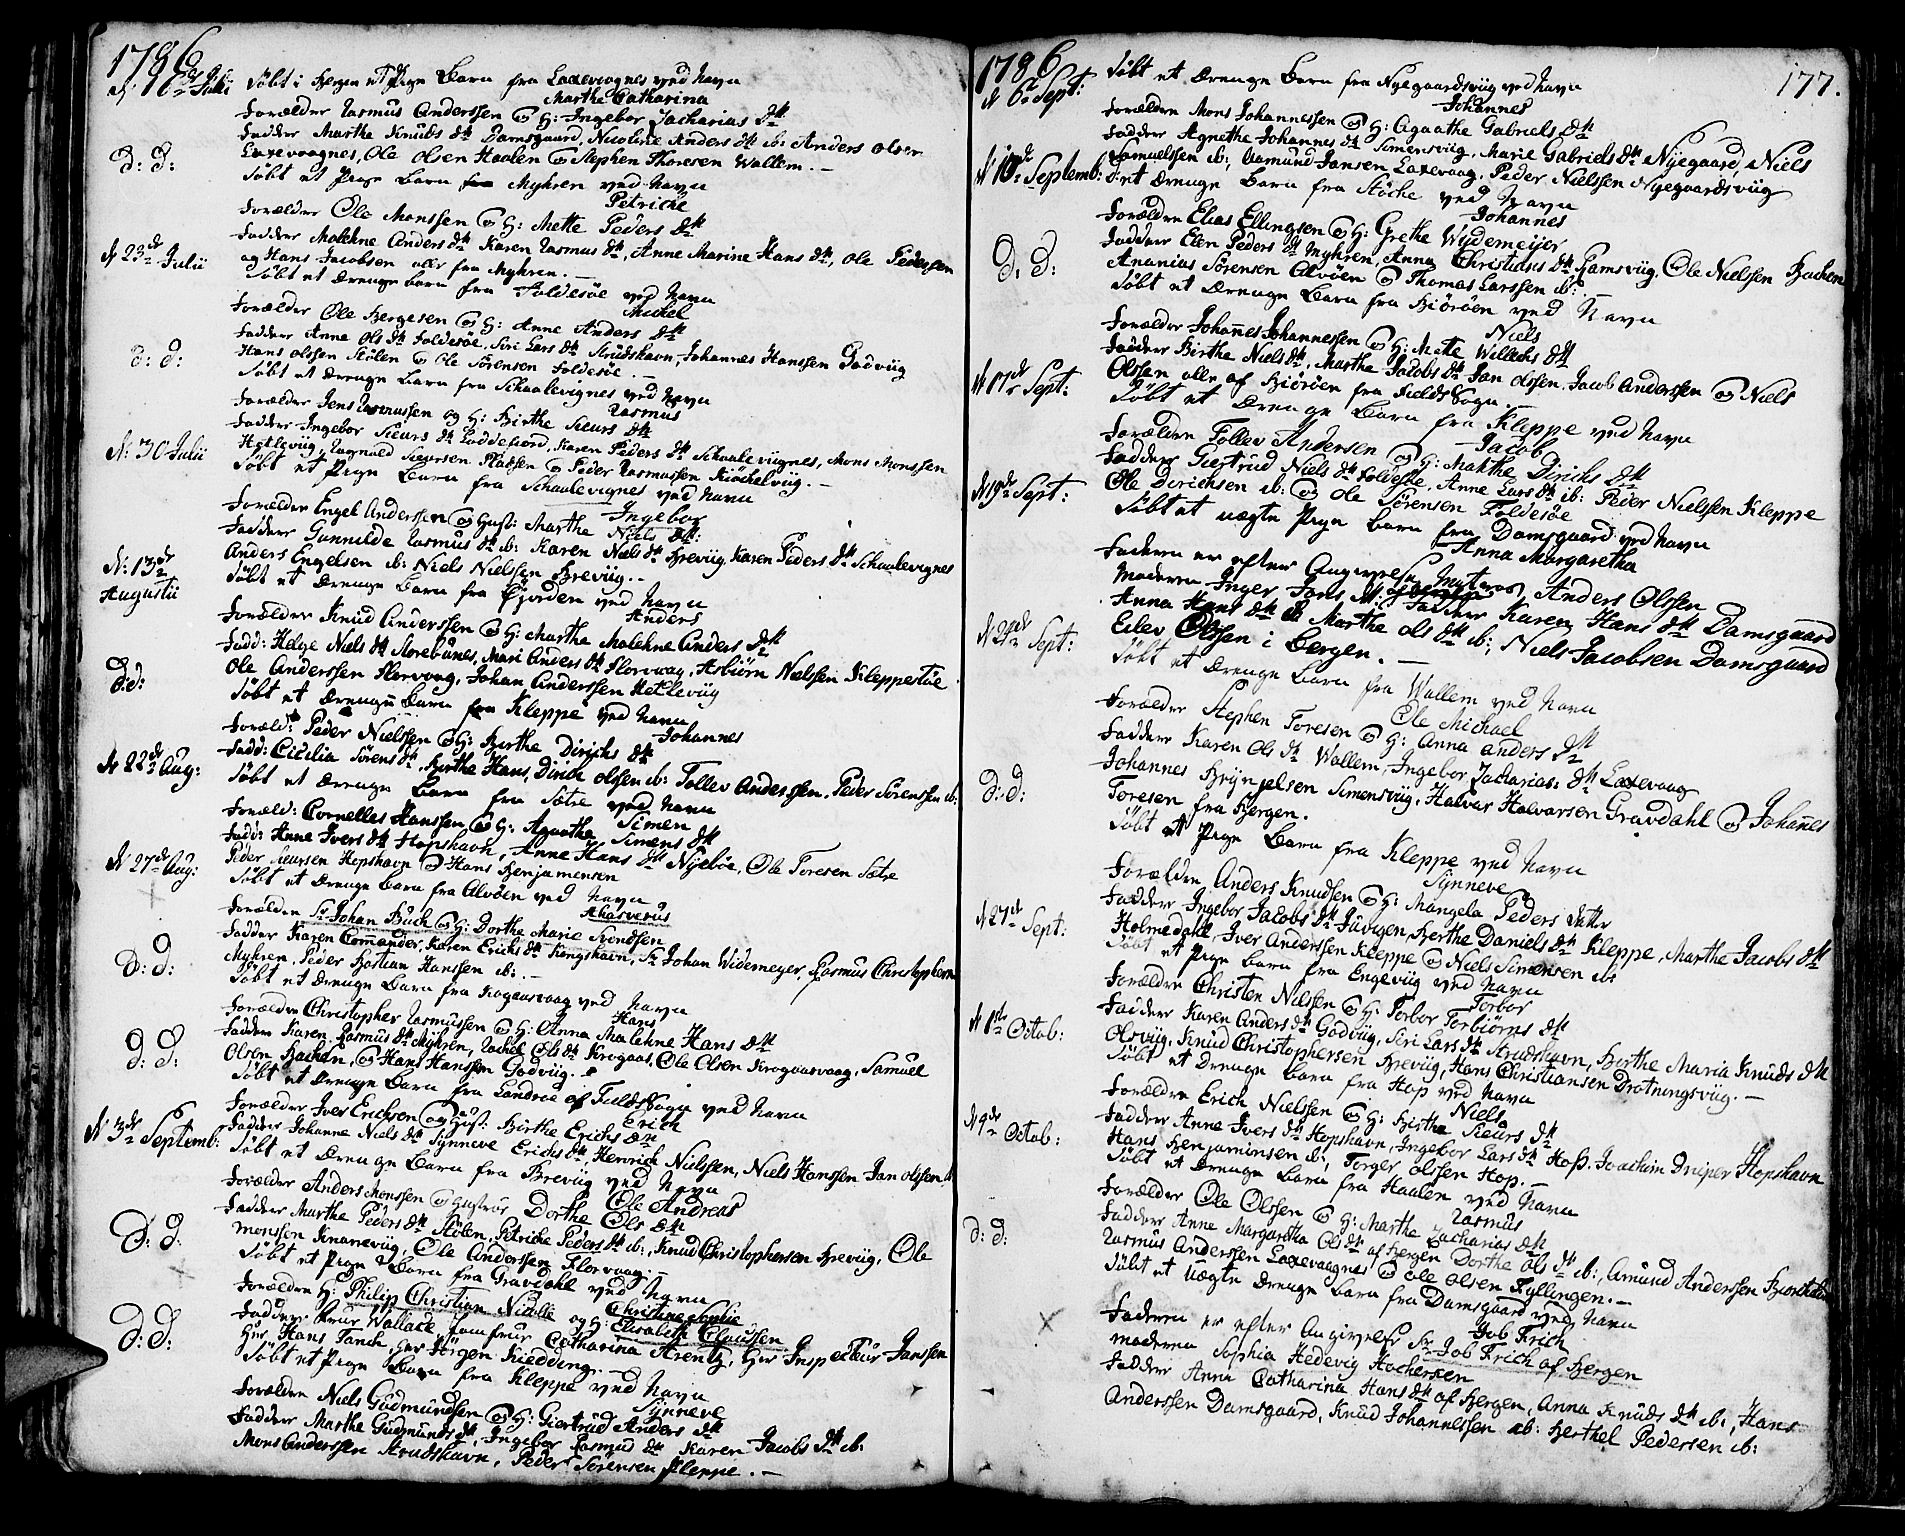 1786
d: 16de Julii Døbt i Bergen et Pige Barn fra Laxevaagnes ved Navn
Marthe Catharina
Forældre Rasmus Anderssen og H: Ingebor Zacharias dtt
Fadder Marthe Knuds dtt Damsgaard, Nicoline Anders dtt ib: Anders Olsen
Laxevaagnes, Ole Olsen Haalen og Stephen Thoresen Wallem. –
D: D: Døbt et Pige Barn fra Myhren ved Navn
Petriche
Forældre Ole Monssen og H: Mette Peders dtt
Fadder Malehne Anders dtt Karen Rasmus dtt, Anne Marine Hans dtt, Ole Pedersen
og Hans Jacobsen alle fra Myhren. –
N 23de Julii Døbt et Drenge Barn fra Foldesøe ved Navn
Michel
Forældre Ole Bergesen og H: Anne Anders dtt
Fadder Anne Ols dtt Foldesøe, Siri Lars dtt Strudshavn, Johannes Hanssen Godviig
Hans Olssen Stølen og Ole Sørensen Foldesøe. –
D: D: Døbt et Drenge Barn fra Schaalevignes ved Navn
Rasmus
Forældre Jens Rasmussen og H: Birthe Sieurs dtt
Fadder Ingebor Sieurs dtt Loddefiord, Karen Peders dtt Schaaleviignes, Mons Monssen
Hetleviig, Ragnald Sieursen Pladsen og Peder Rasmussen Kiøchelviig. –
N: 30 Julii Døbt et Pige Barn fra Schaalevignes ved Navn
Ingebor
Forældre Engel Anderssen og Hust: Marthe Niels dtt:
Fadder Gunnilde Rasmus dtt ib: Karen Niels dtt Breviig, Karen Peders dtt Schaalevignes
Anders Engelsen ib: Niels Nielssen Breviig. –
N: 13de Augustii Døbt et Drenge Barn fra Fjorden ved Navn
Anders
Forældre Knud Anderssen og H: Marthe Malehne Anders dtt
Fadd: Helge Niels dtt Storebunes, Mari Anders dtt Florvaag, Asbiørn Nielssen Kleppestøe
Ole Anderssen Florvaag, Johan Anderssen Hetleviig
D: d: Døbt et Drenge Barn fra Kleppe ved Navn
Johannes
Foræld: Peder Nielssen og H: Birthe Dirichs dtt
Fadd: Cicilia Sørens dtt, Birthe Hans, Dirich Olssen ib: Tollev Anderssen, Peder Sørenssen ib:
N 22de Aug: Døbt et Drenge Barn fra Sætre ved Navn
Simen
Foræld: Cornelles Hanssen og H: Agaathe Simens dtt
Fadd: Anne Ivers dtt Hopshavn, Anne Hans dtt Nyebøe, Ole Toresen Sætre
Peder Sieursen Hopshavn og Hans Benjamensen
N 27de Aug: Døbt et Drenge Barn fra Alvøen ved Navn
Ahasverus
Forældre Sr Johan Büch og H: Dorthe Marie Svendsen
Fadder Karen Commander, Karen Erichs dtt Kongshavn, Sr Johan Widemeyer, Rasmus Christophersen
Myhren, Peder Bastian Hanssen ib: –
D: D: Døbt et Drenge Barn fra Krogaasvaag ved Navn
Hans
Forældre Christopher Rasmussen og H: Anna Malehne Hans dtt
Fadder Karen Rasmus dtt Myhren, Rachel Ols dtt Krogaas, Ole Olsen Krogaasvaag, Samuel
Olsen Bachen, og Hans Hanssen Godviig. –
D: D: Døbt et Drenge Barn fra Landroe af Fieldsogn ved Navn
Erich
Forældre Iver Erichsen og Hust: Birthe Erichs dtt
Fadder Johanne Niels dtt Synneve Erichs dtt, Henrich Nielssen, Niels Hanssen, Jan Olssen ib:
N 3de Septemb: Døbt et Drenge Barn fra Breviig ved Navn
Ole Andreas
Forældre Anders Monssen og Hustrue Dorthe Ols dtt
Fadder Marthe Peders dtt Stølen, Petriche Peders dtt ib:, Knud Christophersen Breviig, Ole
Monssen Knarreviig, Ole Anderssen Florvaag. –
D: D: Døbt et Pige Barn fra Gravdahl ved Navn
Christine Sophie
Forældre H: Philip Christian Nicolle og H: Elisabeth Claussen
Fadder Frue Wallace, Jomfrue Catharina Arentz, Her Inspecteur Janssen
Her Hans Tanch, Her Jørgen Riedding. –
D: D: Døbt et Pige Barn fra Kleppe ved Navn
Synneve
Forældre Niels Gudmundsen og H: Giertrud Anders dtt
Fadder Marthe Gudmunds dtt, Ingebor Rasmus dtt Karen Jacobs dtt ib:
Mons Anderssen Strudshavn, Peder Sørensen Kleppe. –
1786 177.
N 6te Sept: Døbt et Drenge Barn fra Nyegaardsviig ved Navn
Johannes
Forældre Mons Johannessen og H: Agaathe Gabriels dtt
Fadder Agnethe Johannes dtt Simensviig, Marie Gabriels dtt Nyegaard, Niels
Samuelssen ib:, Aamund Jansen Laxevaag, Peder Nielssen Nyegaardsviig
N 10de Septemb: Døbt et Drenge Barn fra Støche ved Navn
Johannes
Forældre Elias Ellingsen og H: Grethe Wydemeijer
Fadder Elen Peders dtt Myhren, Anna Christians dtt Ramsviig, Ole Nielssen Bachen
Ananias Sørensen Alvøen og Thomas Larssen ib: –
D: D: Døbt et Drenge Barn fra Biørøen ved Navn
Niels
Forældre Johannes Johannessen og H: Mette Willchs dtt
Fadder Birthe Niels dtt, Marthe Jacobs dtt Jan Olssen, Jacob Anderssen og Niels
Olssen alle af Biørøen fra Fields Sogn. –
N 17de Sept: Døbt et Drenge Barn fra Kleppe ved Navn
Jacob
Forældre Tollev Andersen og H: Marthe Dirichs dtt
Fadder Giertrud Niels dtt Foldesøe, Anne Lars dtt ib: Peder Nielssen Kleppe
Ole Dirichsen ib: og Ole Sørensen Foldesøe
N 19de Sept: Døbt et uægte Pige Barn fra Damsgaard ved Navn
Anna Margaretha
Faderen er efter Angivelse Anders Olssen
Moderen Inger Jans dtt Fadder Karen Hans dtt Damsgaard
Anna Hans dtt ib Marthe Ols dtt ib:, Niels Jacobsen Damsgaard
Eilev Olssen i Bergen. –
N 24de Sept: Døbt et Drenge Barn fra Wallem ved Navn
Ole Michael
Forældre Stephen Toresen og H: Anna Anders dtt
Fadder Karen Ols dtt Wallem, Ingebor Zacharias dtt Laxevaag
Johannes Brynjelsen Simensviig, Halvar Halvarsen Gravdahl og Johannes
Toresen fra Bergen.
D: D: Døbt et Pige Barn fra Kleppe ved Navn
Synneve
Forældre Anders Knudsen og H: Mangela Peders datter
Fadder Ingebor Jacobs dtt Juvigen, Berthe Daniels dtt Kleppe, Marthe Jacobs dtt
Holmedahl, Iver Anderssen Kleppe og Niels Simensen ib:
N 27de Sept: Døbt et Pige Barn fra Engeviig ved Navn
Torbor
Forældre Christen Nilssen og H: Torbor Torbiørns dtt
Fadder Karen Anders dtt Godviig, Siri Lars dtt Strudshavn, Birthe Maria Knuds dtt
Olsviig, Knud Christophersen Breviig, Hans Christiansen Drotningsviig. –
N 1ste Octob: Døbt et Drenge Barn fra Hop ved Navn
Niels
Forældre Erich Nielssen og H: Birthe Sieurs dtt
Fadder Anne Ivers dtt Hopshavn, Ingebor Lars dtt Hop, Joachim Dreyer Hopshavn
Hans Benjaminsen ib:, Torger Olssen Hop. –
N 9de Octob: Døbt et Drenge Barn fra Haalen ved Navn
Rasmus
Forældre Ole Olssen og H: Marthe Zacharias dtt
Fadder Anne Margaretha Ols dtt af Bergen Dorthe Ols dtt ib:, Amund Anderssen
Rasmus Anderssen Laxevaagnes og Ole Olsen Fyllingen. –
D: D: Døbt et uægte Drenge Barn fra Damsgaard ved Navn
Job Frich
Faderen er efter Angivelse Sr Job Frich af Bergen
Moderen Sophia Hedevig
Fadder Anna Catharina Hans dtt af Bergen, Anna Knuds dtt ib:, Hans
Anderssen Damsgaard, Knud Johannessen ib: Berthel Pedersen ib: